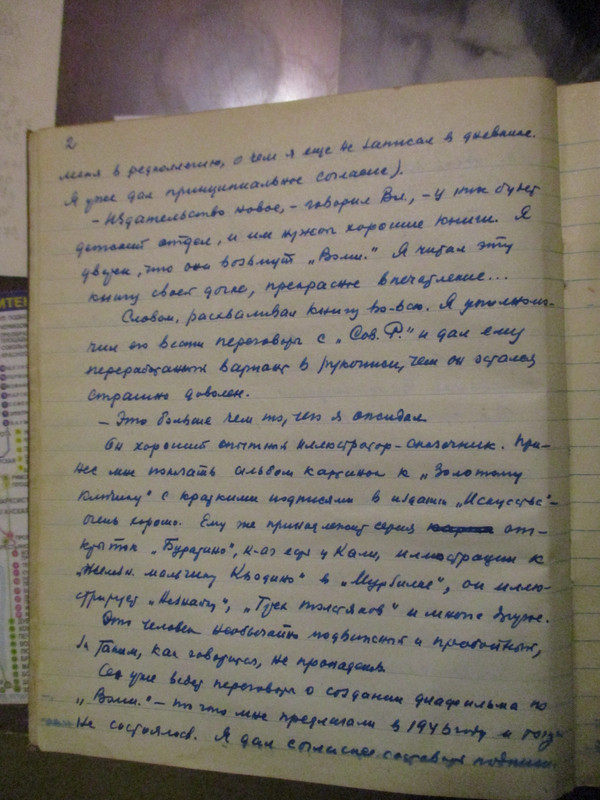 2
меня в редколлегию, о чем я еще не записал в дневнике.
Я уже дал принципиальное согласие).
– Издательство новое, – говорил Вл., – у них будет
детский отдел, и им нужны хорошие книги. Я
думаю, что они возьмут „Волш." Я читал эту
книгу своей дочке, прекрасное впечатление...
Словом, расхваливал книгу во-всю. Я уполномо-
чил его вести переговоры с „Сов. Р." и дал ему
переработанный вариант в рукописи, чем он остался
страшно доволен.
– Это больше чем то, чего я ожидал.
Он хороший опытный иллюстратор-сказочник. При-
нес мне показать альбом картинок к „Золотому
ключику" с краткими подписями в издании „Искусства" –
очень хорошо. Ему же принадлежит серия от-
крыток „Буратино", к-ая есть у Кали, иллюстрации к
мальчику в „Мурзилке", он иллю-
стрирует „Незнайку", „Трех толстяков" и много других.
Это человек необычайно подвижный и пробойный,
за таким, как говорится, не пропадешь.
Он уже ведет переговоры о создании диафильма по
„Волш." – то что мне предлагали в году и тогда
не состоялось. Я дал согласие составить подписи.